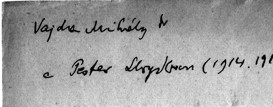 Vajda Mihály
a Pester Lloydban (1914. 191